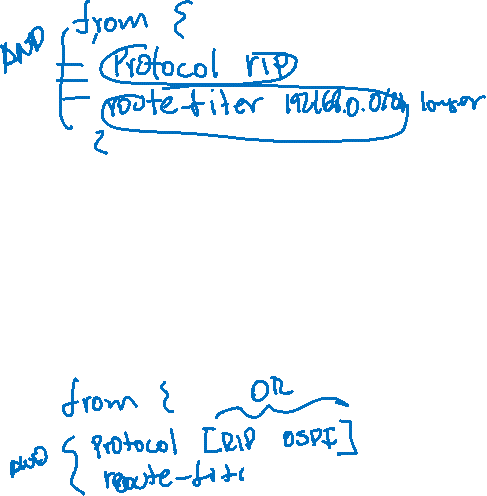 from {
AND
Protocol rip
route-filter 192.168.0.0/24 longer
}
OR
from {
AND
Protocol [RIP OSPF]
route-filt